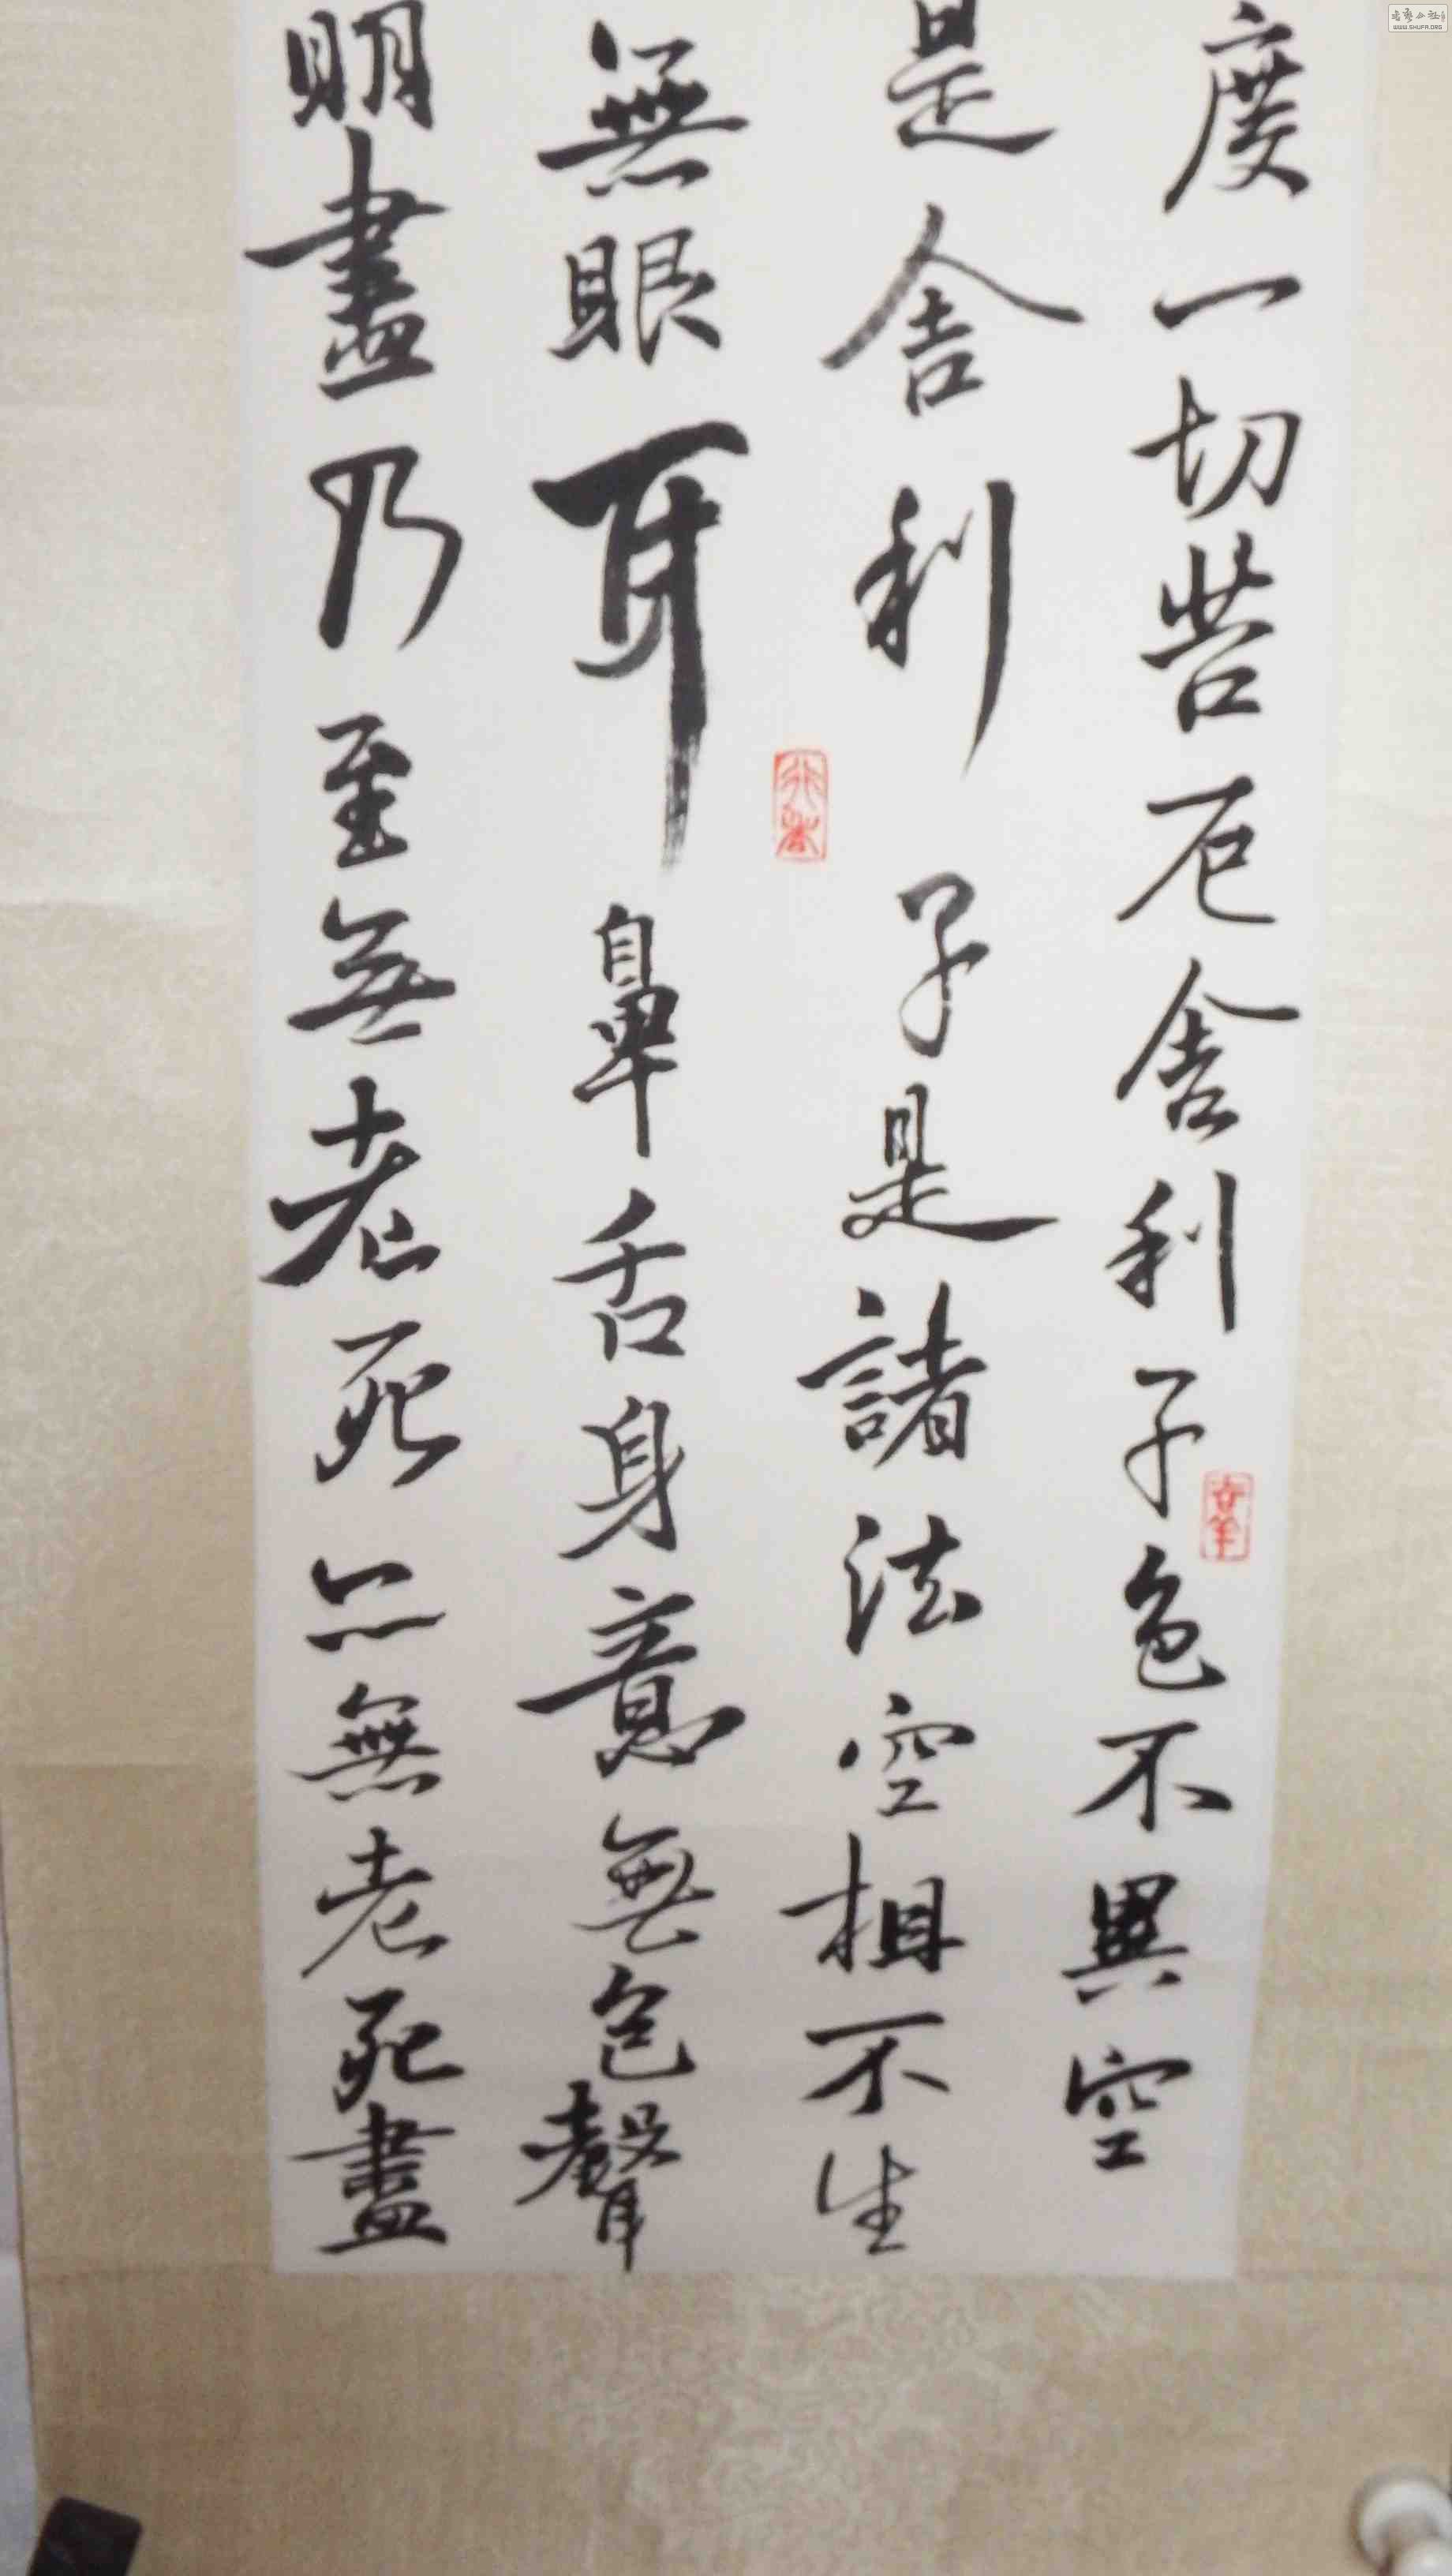 度一切苦厄舍利子色不異空
是舍利子是諸法空相不生
無眼耳鼻舌身意無色聲
明盡乃至無老死亦無老死盡
WWW.SHUFA.ORG